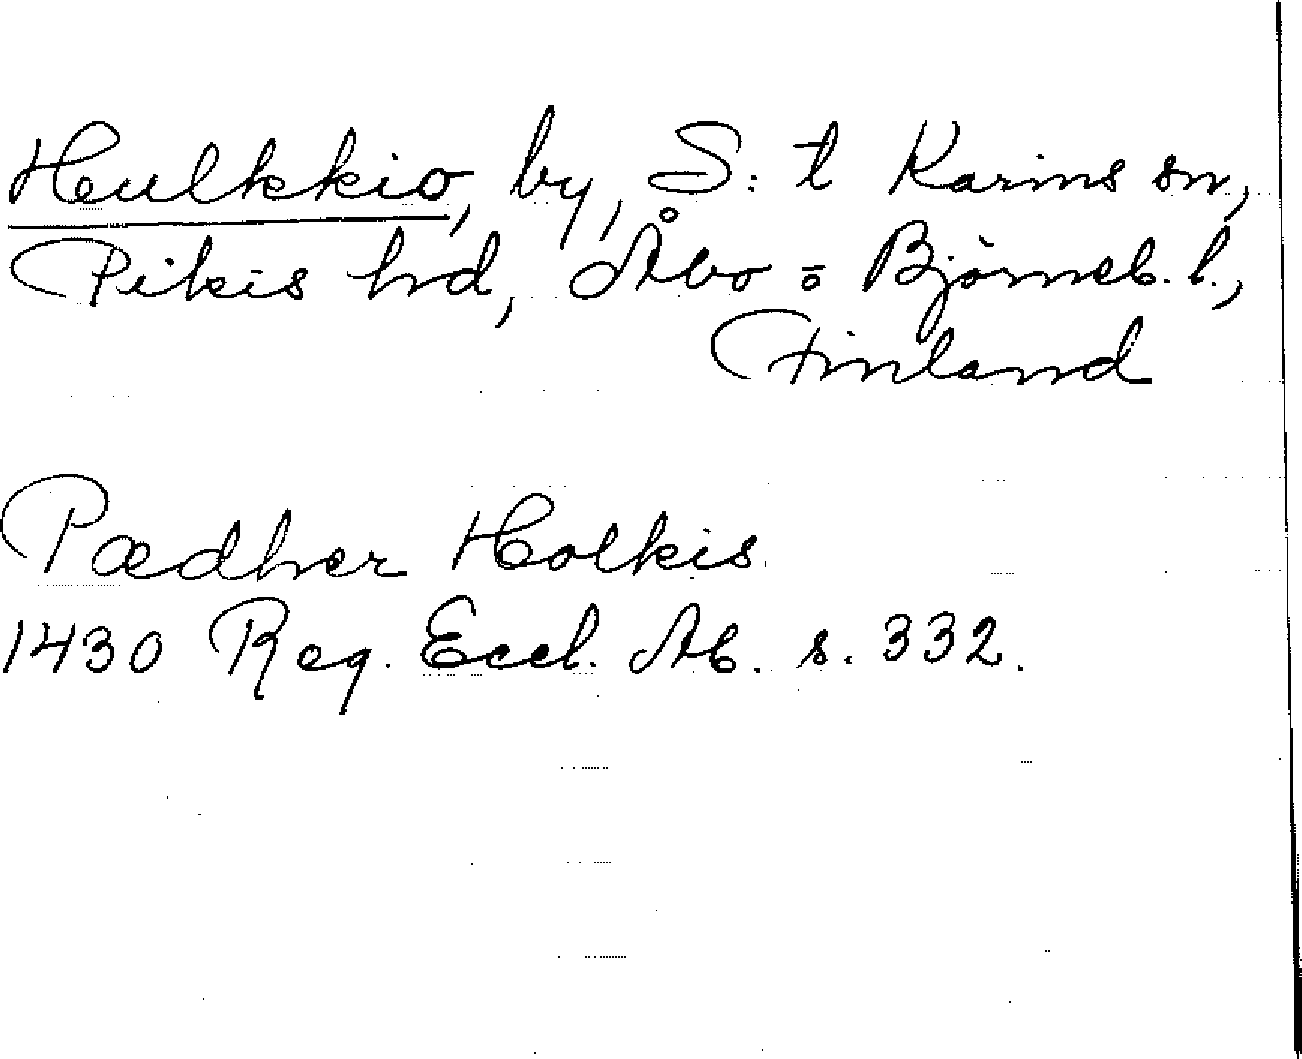 Hulkkio, by, S:t Karins sn,
Pikis hd, Åbo = Björneb. l.,
Finland
Pædher Holkis
1430 Reg. Eccl. Ab. s. 332.